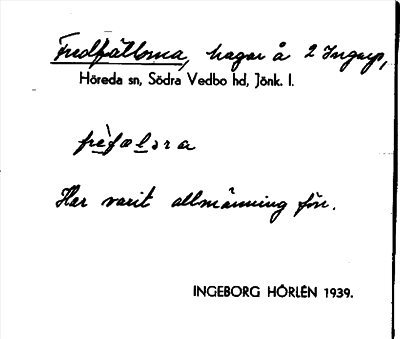 Fredfällorna, hagar å 2 Ingarp,
Höreda sn, Södra Vedbo hd, Jönk. l.
frèfælɔra
Har varit allmänning förr.
INGEBORG HÖRLÉN 1939.